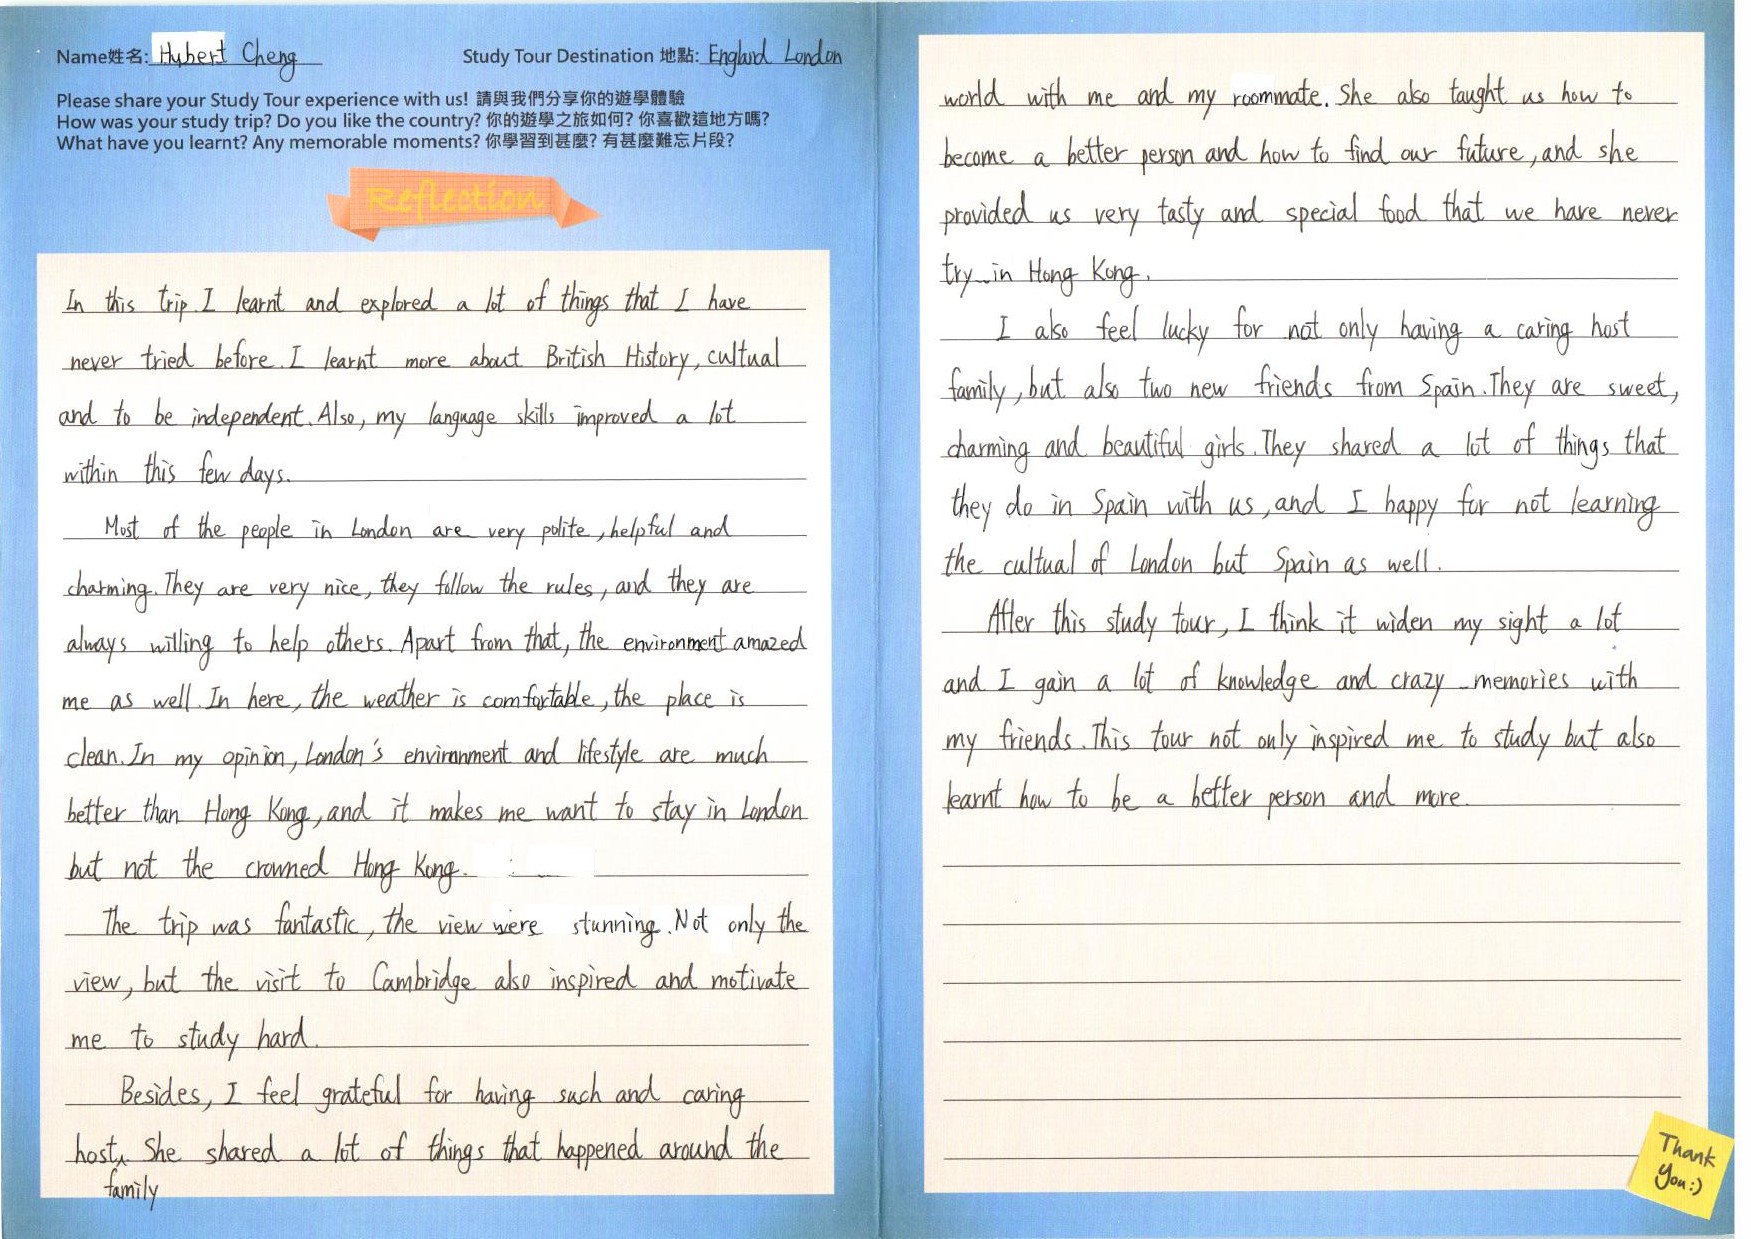 Name姓名: Hubert Cheng
Study Tour Destination 地點: England London
Please share your Study Tour experience with us! 請與我們分享你的遊學體驗
How was your study trip? Do you like the country? 你的遊學之旅如何? 你喜歡這地方嗎?
What have you learnt? Any memorable moments? 你學習到甚麼? 有甚麼難忘片段?
Reflection
In this trip. I learnt and explored a lot of things that I have
never tried before. I learnt more about British History, cultual
and to be independent. Also, my language skills improved a lot
within this few days.
Most of the people in London are very polite, helpful and
charming. They are very nice, they follow the rules, and they are
always willing to help others. Apart from that, the environment amazed
me as well. In here, the weather is comfortable, the place is
clean. In my opinion, London's environment and lifestyle are much
better than Hong Kong, and it makes me want to stay in London
but not the crowned Hong Kong.
The trip was fantastic, the view were stunning. Not only the
view, but the visit to Cambridge also inspired and motivate
me to study hard.
Besides, I feel grateful for having such and caring
host^ She shared a lot of things that happened around the
family
world with me and my roommate. She also taught us how to
become a better person and how to find our future, and she
provided us very tasty and special food that we have never
try in Hong Kong.
I also feel lucky for not only having a caring host
family, but also two new friends from Spain. They are sweet,
charming and beautiful girls. They shared a lot of things that
they do in Spain with us, and I happy for not learning
the cultual of London but Spain as well.
After this study tour, I think it widen my sight a lot
and I gain a lot of knowledge and crazy memories with
my friends. This tour not only inspired me to study but also
learnt how to be a better person and more.
Thank
you:)